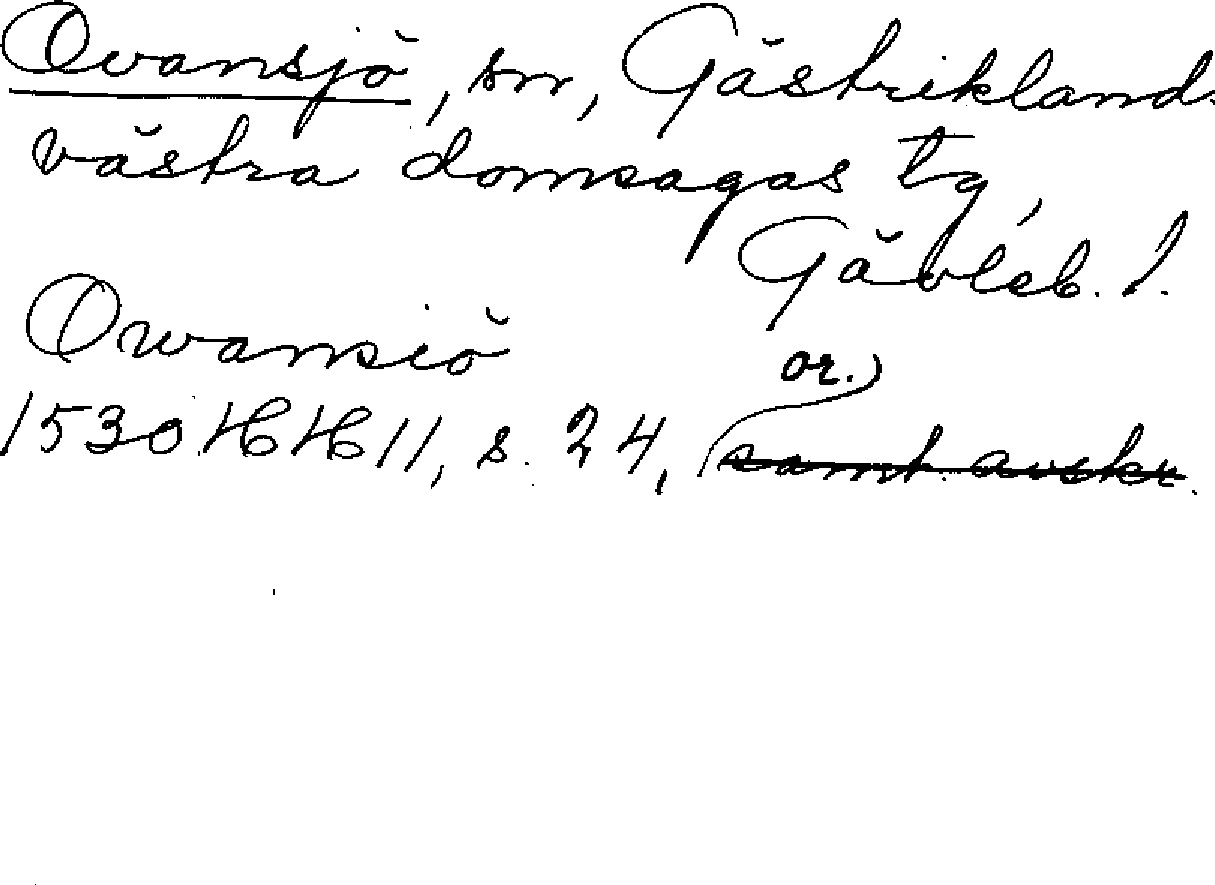 Ovansjö, sn, Gästriklands
västra domsagas tg,
Gävleb. l.
Owansiö
or.)
1530 HH 11, s. 24, samt. avskr.